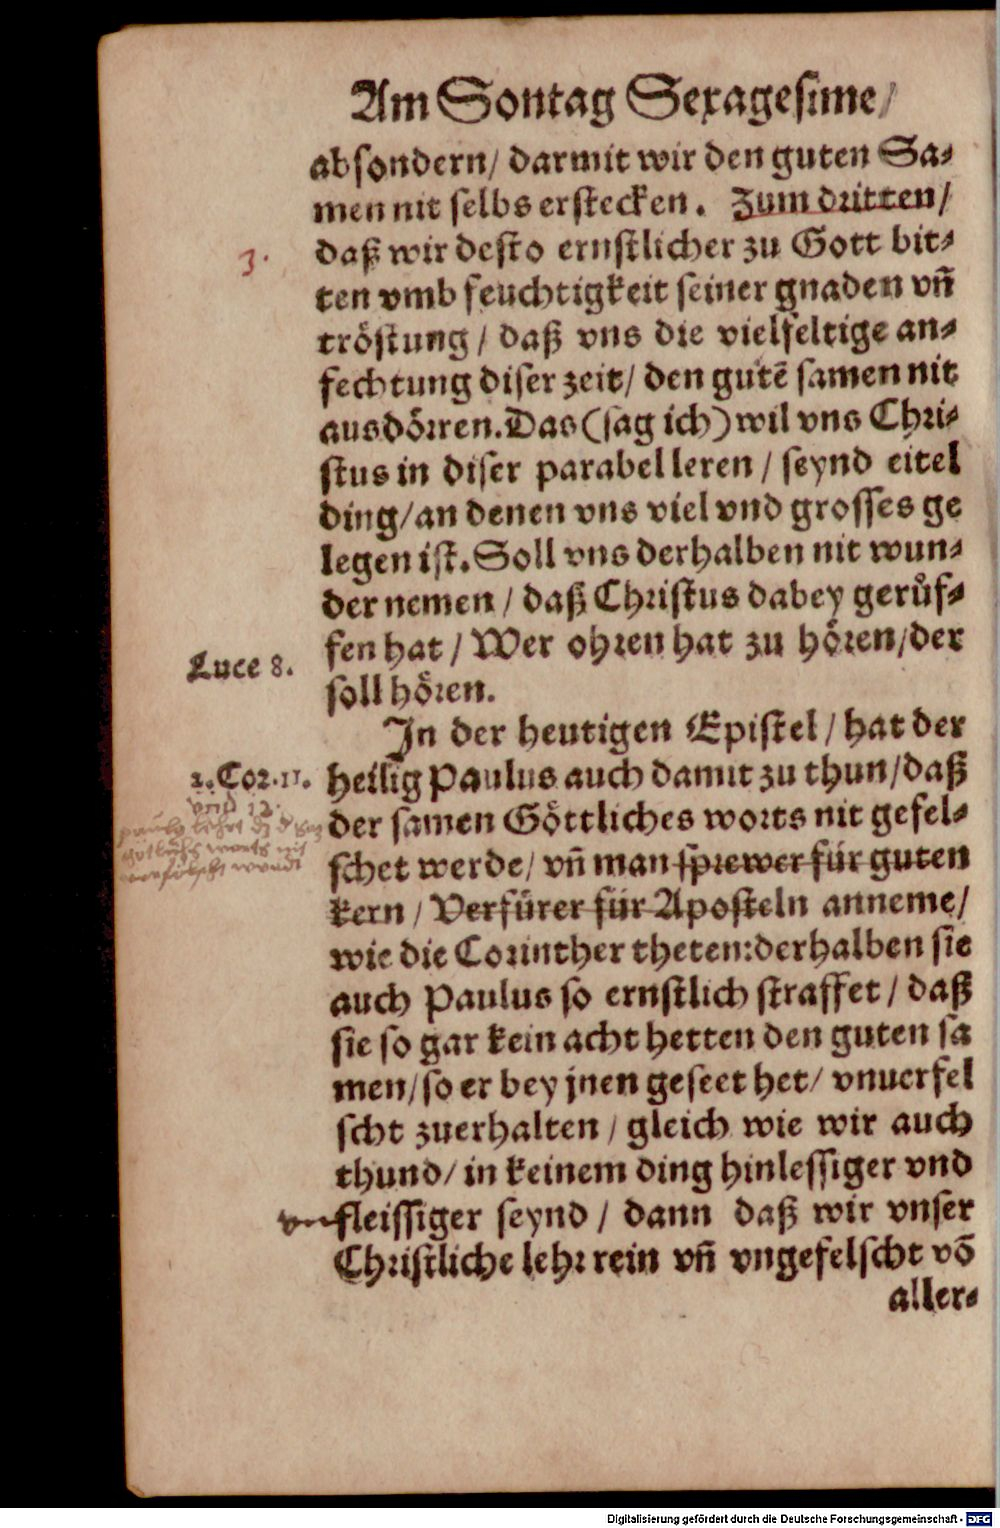 Am Sontag Sexagesime/
absondern/ darmit wir den guten Sa-
men nit selbs erstecken. Zum dritten/
3.
daß wir desto ernstlicher zu Gott bit-
ten vmb feuchtigkeit seiner gnaden vñ
tröstung / daß vns die vielfeltige an-
fechtung diser zeit/ den gutẽ samen nit
ausdörren. Das (sag ich) wil vns Chri-
stus in diser parabel leren / seynd eitel
ding/ an denen vns viel vnd grosses ge
legen ist. Soll vns derhalben nit wun-
der nemen / daß Christus dabey gerůf-
fen hat / Wer ohren hat zu hören/ der
Luce 8.
soll hören.
In der heutigen Epistel / hat der
2. Cor. 11.
heilig Paulus auch damit zu thun/ daß
vnd 12.
der samen Göttliches worts nit gefel-
schet werde/ vñ man sprewer für guten
kern / Verfürer für Aposteln anneme/
wie die Corinther theten: derhalben sie
auch Paulus so ernstlich straffet / daß
sie so gar kein acht hetten den guten sa
men/ so er bey jnen geseet het/ vnuerfel
scht zuerhalten / gleich wie wir auch
thund/ in keinem ding hinlessiger vnd
vnfleissiger seynd / dann daß wir vnser
Christliche lehr rein vñ vngefelscht võ
aller-
Digitalisierung gefördert durch die Deutsche Forschungsgemeinschaft - DFG